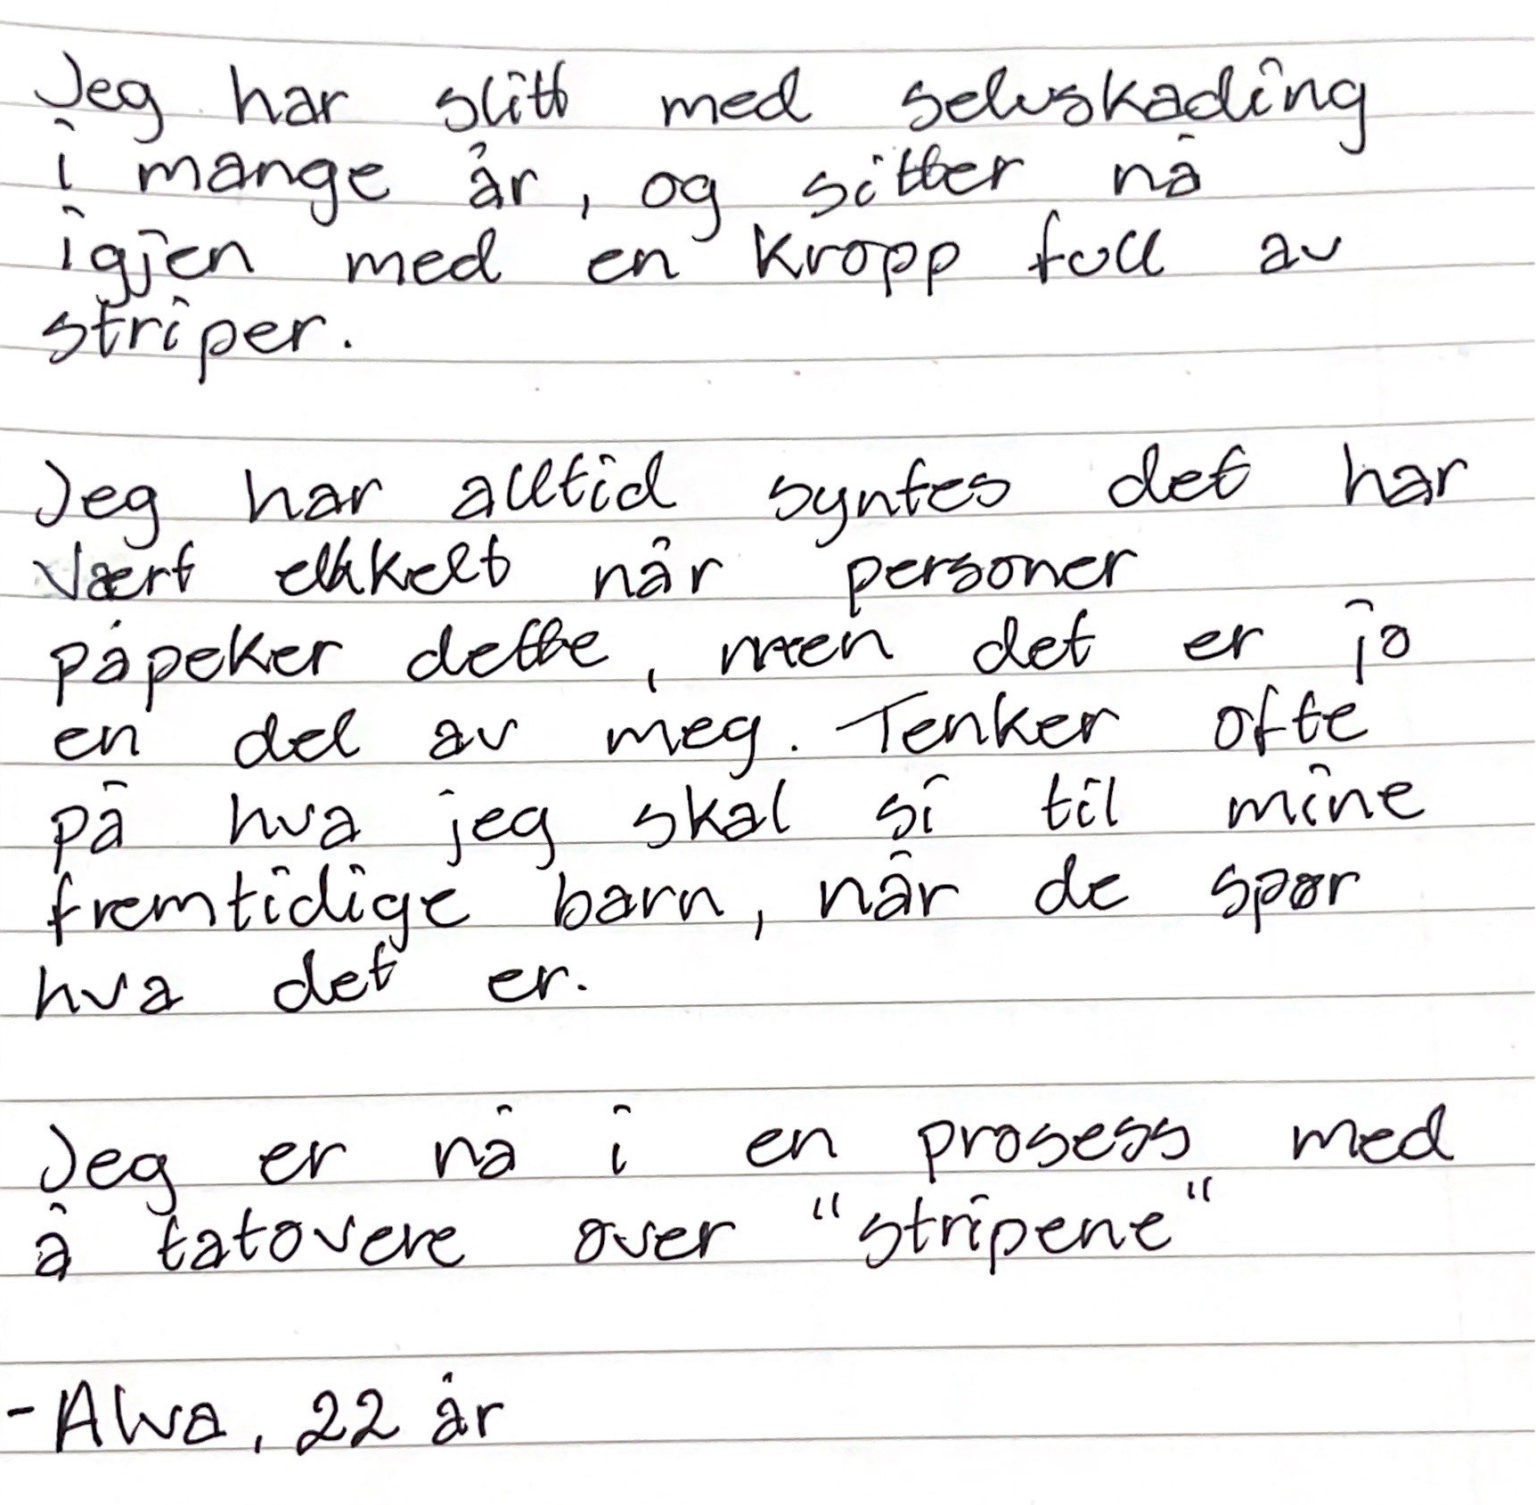 Jeg har slitt med selvskading
i mange år, og sitter nå
igjen med en kropp full av
striper.
Jeg har alltid syntes det har
vært ekkelt når personer
påpeker dette, men det er jo
en del av meg. Tenker ofte
på hva jeg skal si til mine
fremtidige barn, når de spør
hva det er.
Jeg er nå i en prosess med
å tatovere over "stripene"
- Alva, 22 år